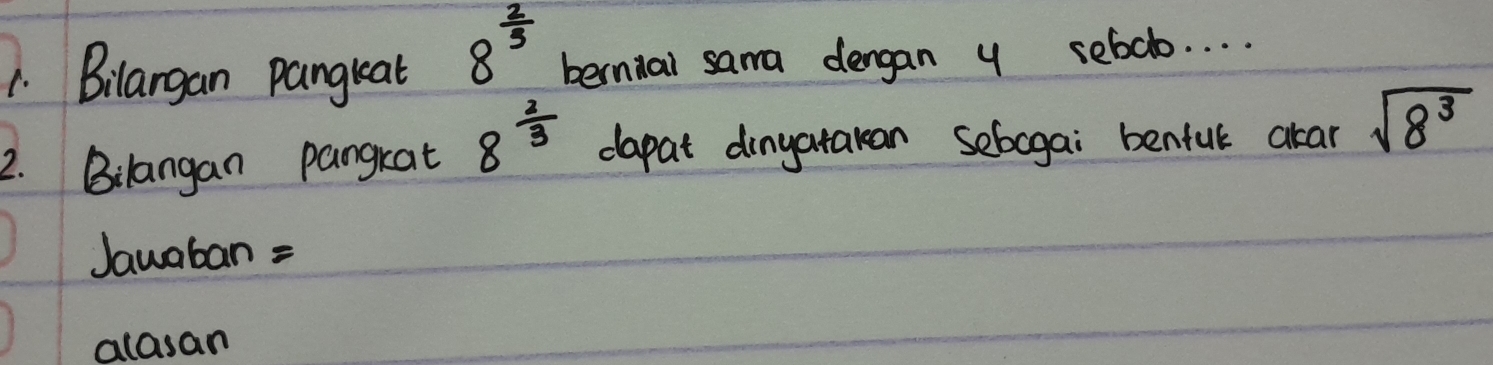 1. Bilangan pangkat 8^(2/3) bernilai sama dengan 4 sebab....
2. Bilangan pangkat 8^(2/3) dapat dinyatakan sebagai bentuk akar √(8^3)
Jawaban =
alasan